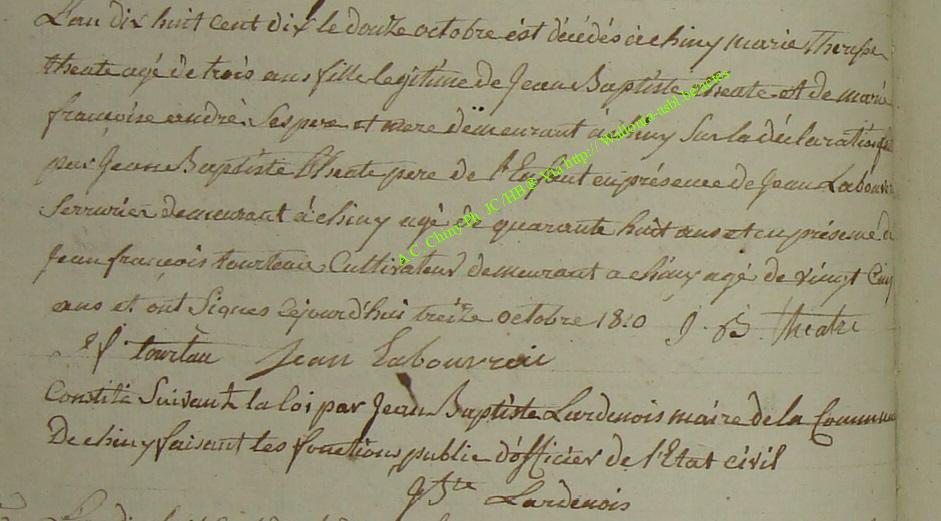 L'an dix huit cent dix le douze octobre est décédés à chiny marie Therese
theate agé de trois ans fille legitime de Jean Baptiste theate et de marie
françoise andre Ses pere et mere demeurant à chiny Sur la déclaration
par Jean Baptiste Theate pere de l'Enfant en présence de Jean
Serrurier demeurant à chiny agé de quarante huit ans et en présence de
Jean francois tourteau Cultivateur demeurant a chiny agé de vingt Cinq
ans et ont Signes cejourd'hui treize octobre 1810 J. B. Theate
tourtau Jean Labouvroie
Constité Suivant la loi par Jean Baptiste Lardenois maire de la Commune
De chiny faisant les fonctions public d'officier de l'Etat civil
Jbte Lardenois
A.C. Chiny Ph. JC/HB@ Via http:// Wallonia-asbl benelex